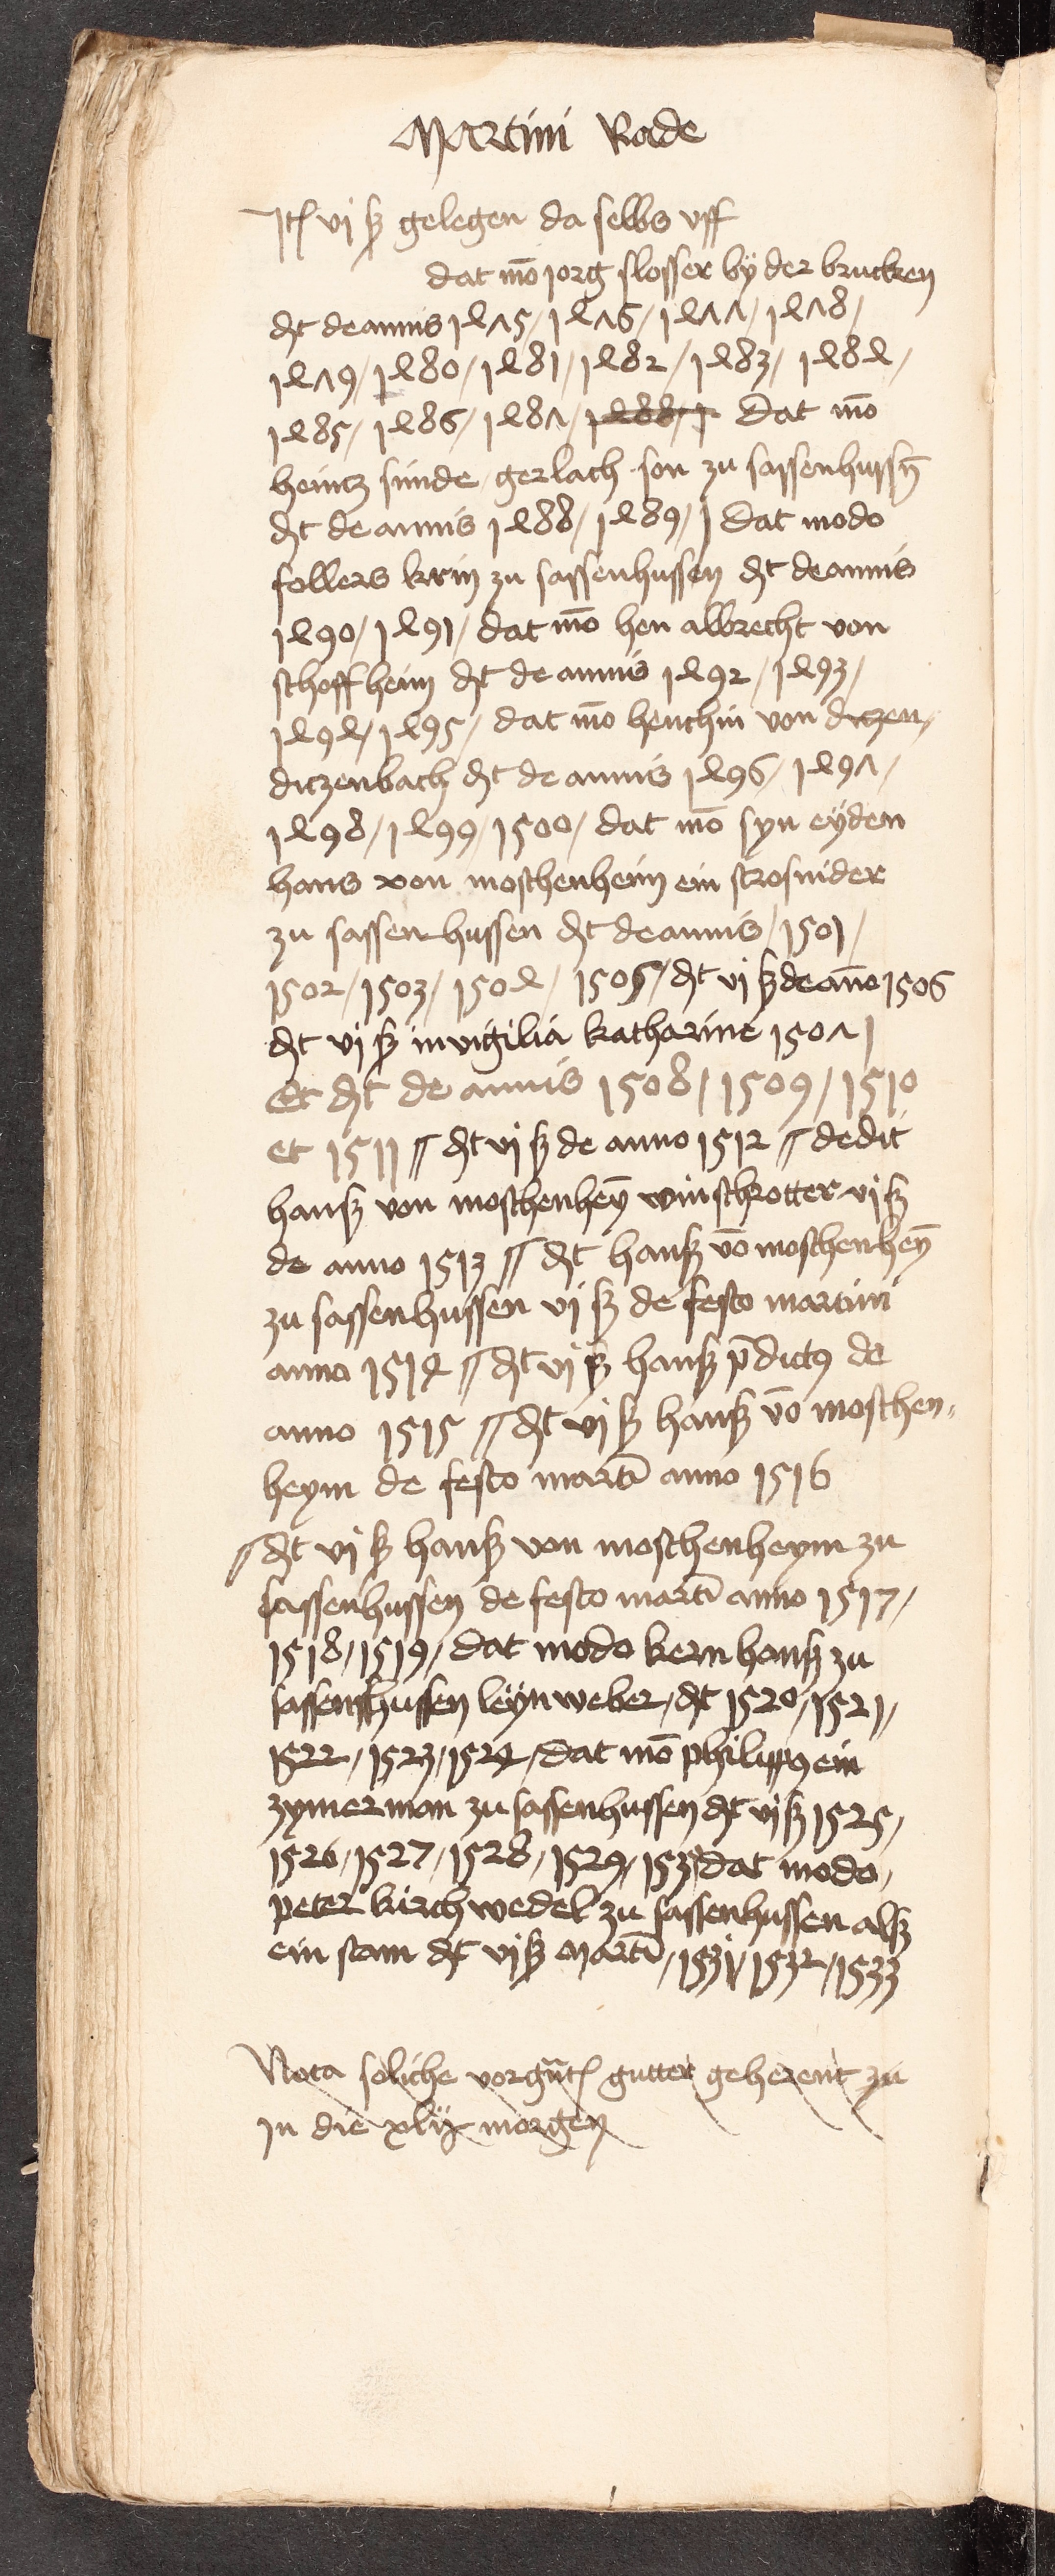 Martini Rade
Jt vj ß gelegen da selbs vff
dat mō jorg slosser by der brucken
dt de annis 1475 / 1476 / 1477 / 1478 /
1479 / 1480 / 1481 / 1482 / 1483 / 1484 /
1485 / 1486 / 1487 / 1488 / 1 dat mō
heintz sunde gerlach son zu sassenhussē
dt de annis 1488 / 1489 / dat modo
follers krin zu sassenhussen dt de annis
1490 / 1491 / dat mō hen albrecht von
schoffheim dt de annis 1492 / 1493 /
1494 / 1495 / dat mō henchin von ditzen
ditzenbach dt de annis 1496 / 1497 /
1498 / 1499 / 1500 / dat mō syn eyden
hans von moschenheim ein strosnider
zu sassenhussen dt de annis / 1501 /
1502 / 1503 / 1504 / 1505 / dt vj ß de āno 1506
dt vj ß in vigilia katharine 1507 /
Et dt de annis 1508 / 1509 / 1510
et 1511 // dt vj ß de anno 1512 // dedit
hanß von moschenheȳ winschrotter vj ß
de anno 1513 // dt hanß vō moschenheȳ
zu sassenhussen vj ß de festo martini
anno 1514 // dt vj ß hanß p̄dictꝯ de
anno 1515 // dt vj ß hanß vō moschen=
heym de festo martī anno 1516
// dt vj ß hanß von moschenheym zu
sassenhussen de festo martī anno 1517 /
1518 / 1519 / dat modo kern hanß zu
sassenhussen leynweber / dt 1520 / 1521 /
1522 / 1523 / 1524 / dat mō philippꝯ ein
zymerman zu sassenhussen dt vj ß 1525 /
1526 / 1527 / 1528 / 1529 / 153 dat modo /
peter kirchwedel zu sassenhussen alß
ein stam dt vj ß martī / 1531 / 1532 / 1533
Nota soliche vorgūt gutter geherent zu
in die xlij morgen